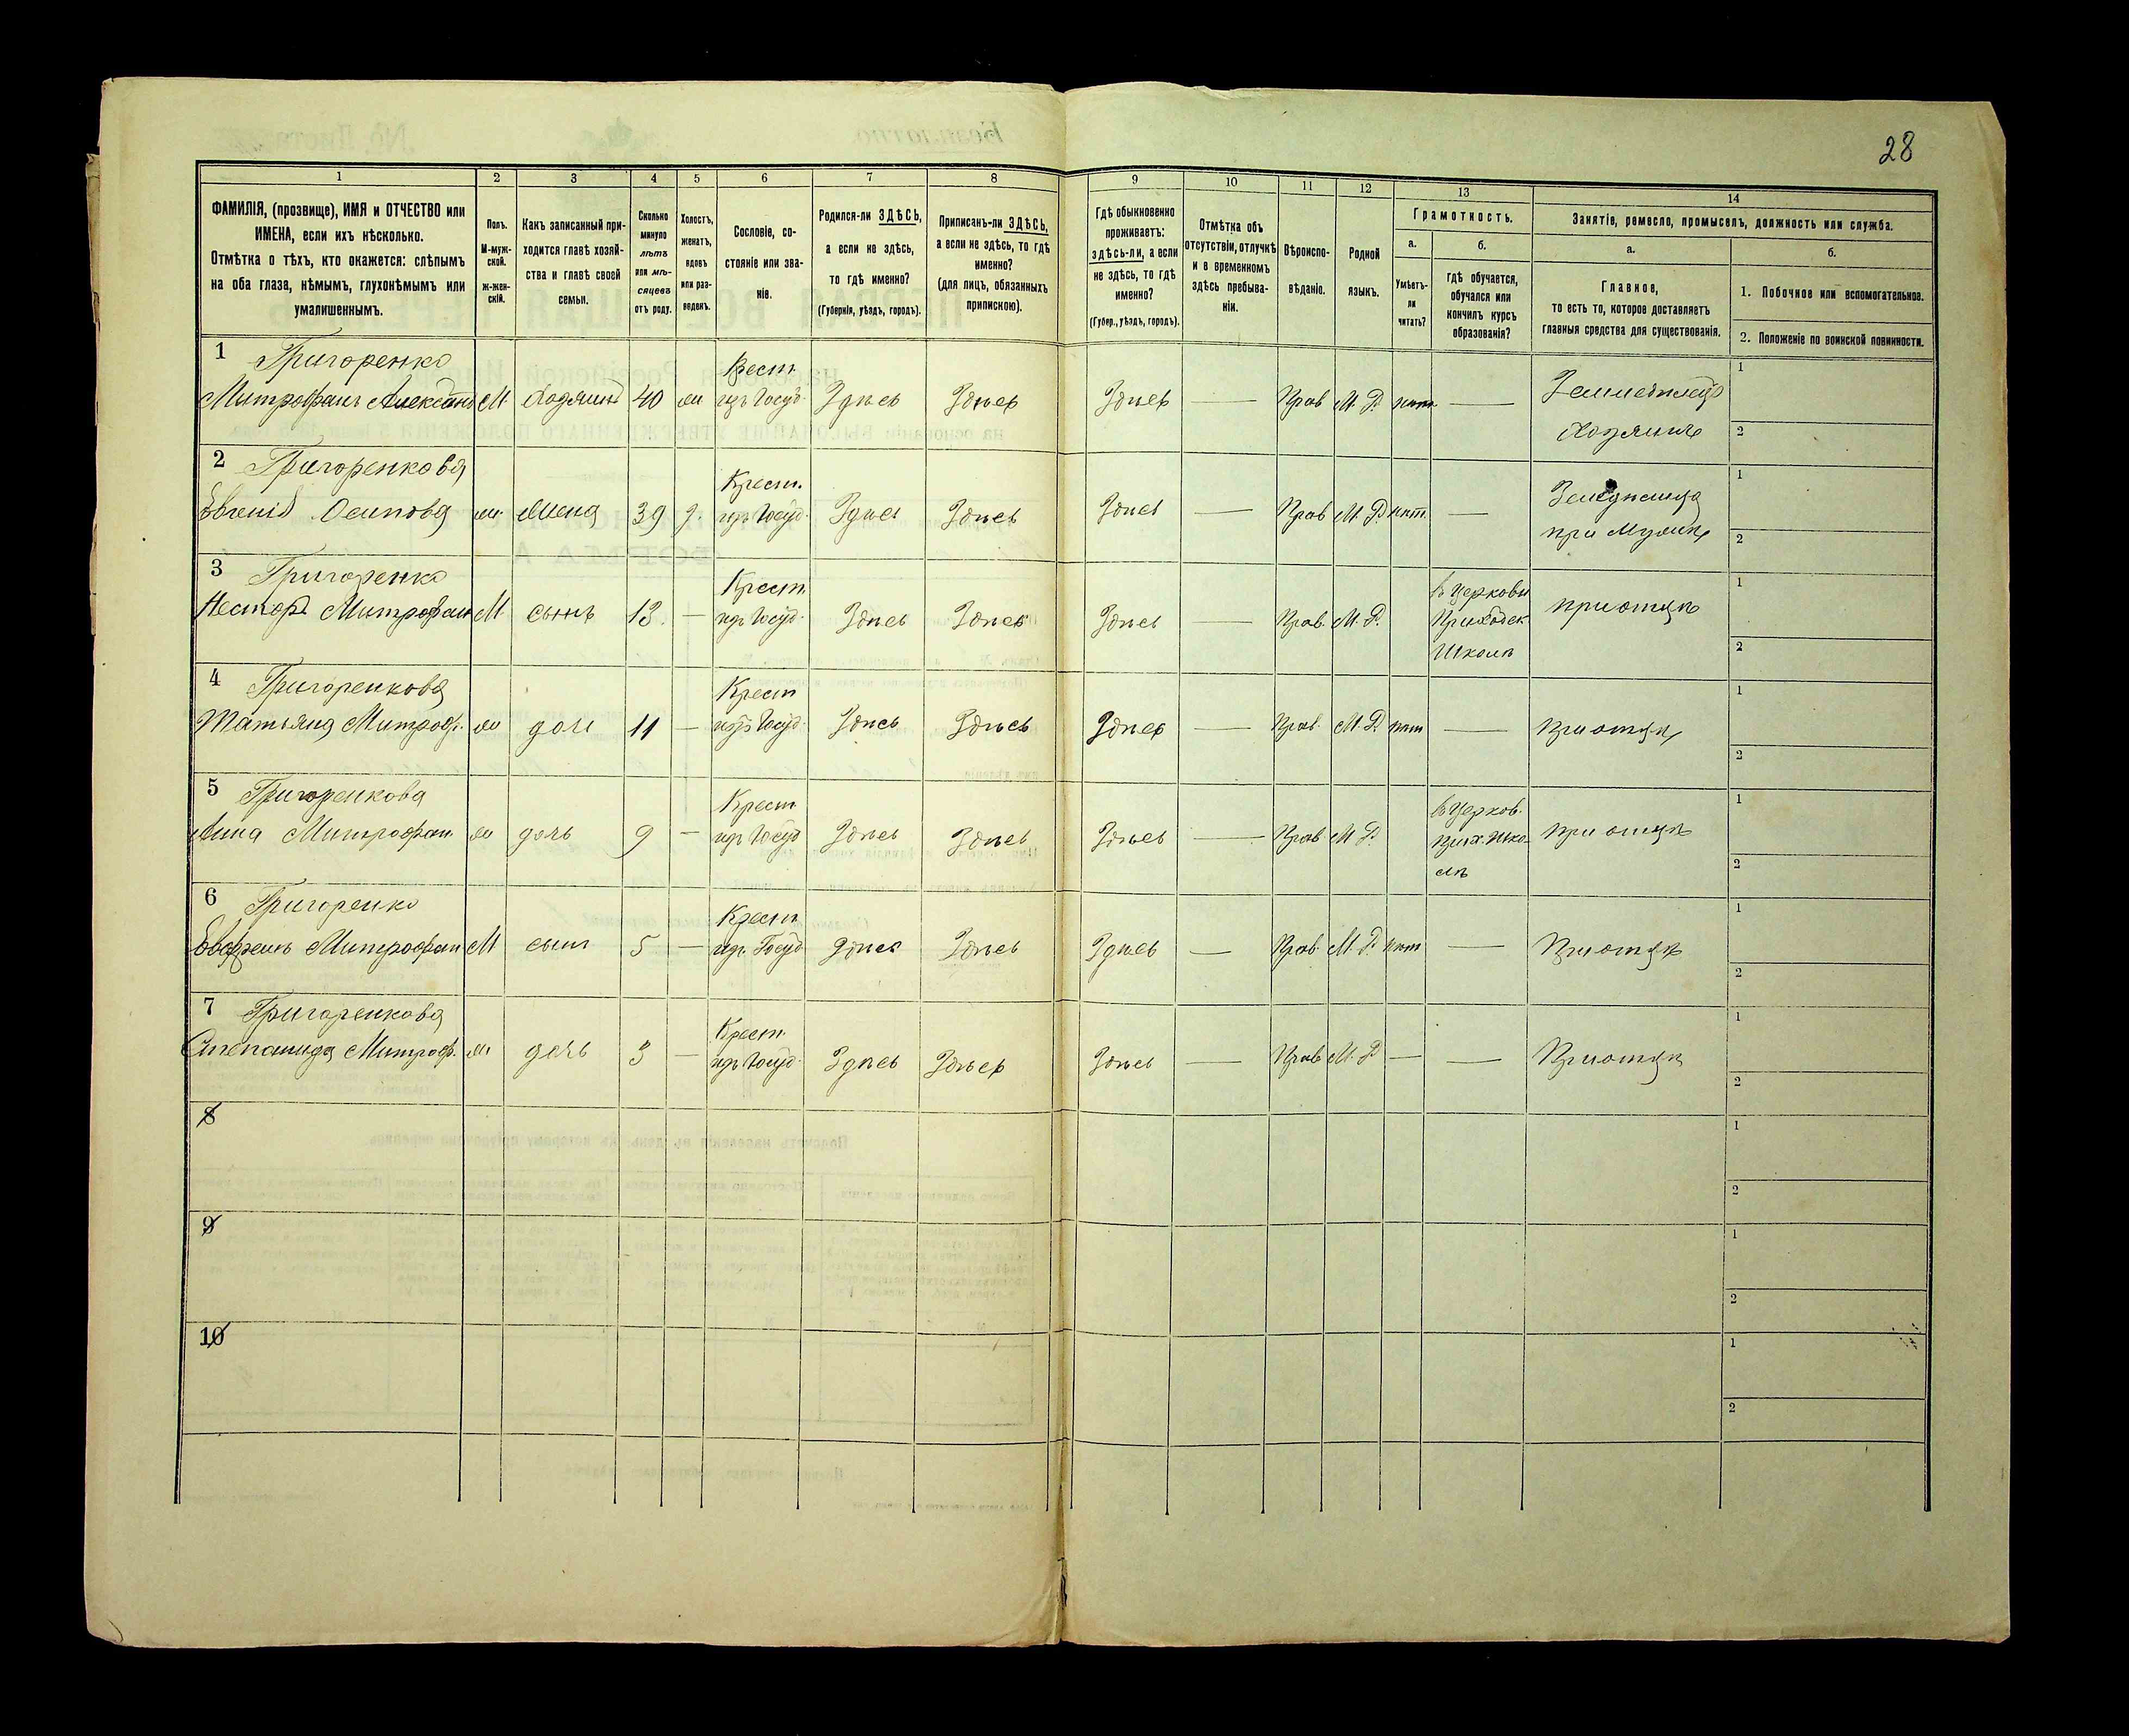 28
1 2 3 4 5 6 7 8 9 10 11 12 13 14
ФАМИЛІЯ, (прозвище), ИМЯ и ОТЧЕСТВО или
ИМЕНА, если ихъ нѣсколько.
Отмѣтка о тѣхъ, кто окажется: слѣпымъ
на оба глаза, нѣмымъ, глухонѣмымъ или
умалишеннымъ.
Полъ.
М-муж-
ской.
ж-жен-
скій.
Какъ записанный при-
ходится главѣ хозяй-
ства и главѣ своей
семьи.
Сколько
минуло
лѣтъ
или мѣ-
сяцевъ
отъ роду.
Холостъ,
женатъ,
вдовъ
или раз-
веденъ.
Сословіе, со-
стояніе или зва-
ніе.
Родился-ли ЗДѢСЬ,
а если не здѣсь,
то гдѣ именно?
(Губернія, уѣздъ, городъ).
Приписанъ-ли ЗДѢСЬ,
а если не здѣсь, то гдѣ
именно?
(для лицъ, обязанныхъ
припискою).
Гдѣ обыкновенно
проживаетъ:
здѣсь-ли, а если
не здѣсь, то гдѣ
именно?
(Губер., уѣздъ, городъ).
Отмѣтка объ
отсутствіи, отлучкѣ
и в временномъ
здѣсь пребыва-
ніи.
Вѣроиспо-
вѣданіе.
Родной
языкъ.
Грамотность.
а.
Умѣетъ-
ли
читать?
б.
Гдѣ обучается,
обучался или
кончилъ курсъ
образованія?
Занятіе, ремесло, промыселъ, должность или служба.
а.
Главное,
то есть то, которое доставляетъ
главныя средства для существованія.
б.
1. Побочное или вспомогательное.
2. Положеніе по воинской повинности.
1 Григоренко
Митрофанъ М. Хозяинъ 40 Крест. изъ Госуд. Здѣсь Здѣсь Здѣсь — Прав М. Р. нѣт. — Хозяинъ
1
2
2 Григоренкова
Евгенія Осипова ж. Жена 39 Крест. изъ Госуд. Здѣсь Здѣсь Здѣсь — Прав М. Р. нѣт. — при Мужѣ
1
2
3 Григоренко
Несторъ Митрофан М сынъ 13 — Крест. изъ Госуд. Здѣсь Здѣсь Здѣсь — Прав. М. Р. въ Церковн Приходск Школѣ при отцѣ
1
2
4 Григоренкова
Татьяна Митроф. ж доч 11 — Крест изъ Госуд. Здѣсь Здѣсь Здѣсь — Прав. М. Р. нѣт — при отцѣ
1
2
5 Григоренкова
Анна Митрофан. ж дочь 9 — Крест изъ Госуд Здѣсь Здѣсь Здѣсь — Прав. М. Р. въ Церков. прих. Шко- лѣ при отцѣ
1
2
6 Григоренко
Митрофан М сынъ 5 — Крест. изъ Госуд Здѣсь Здѣсь Здѣсь — Прав. М. Р. нѣт — При отцѣ
1
2
7 Григоренкова
Степанида Митроф. ж дочь 3 — Крест. изъ Госуд. Здѣсь Здѣсь Здѣсь — Прав М. Р — — При отцѣ
1
2
8
1
2
9
1
2
10
1
2